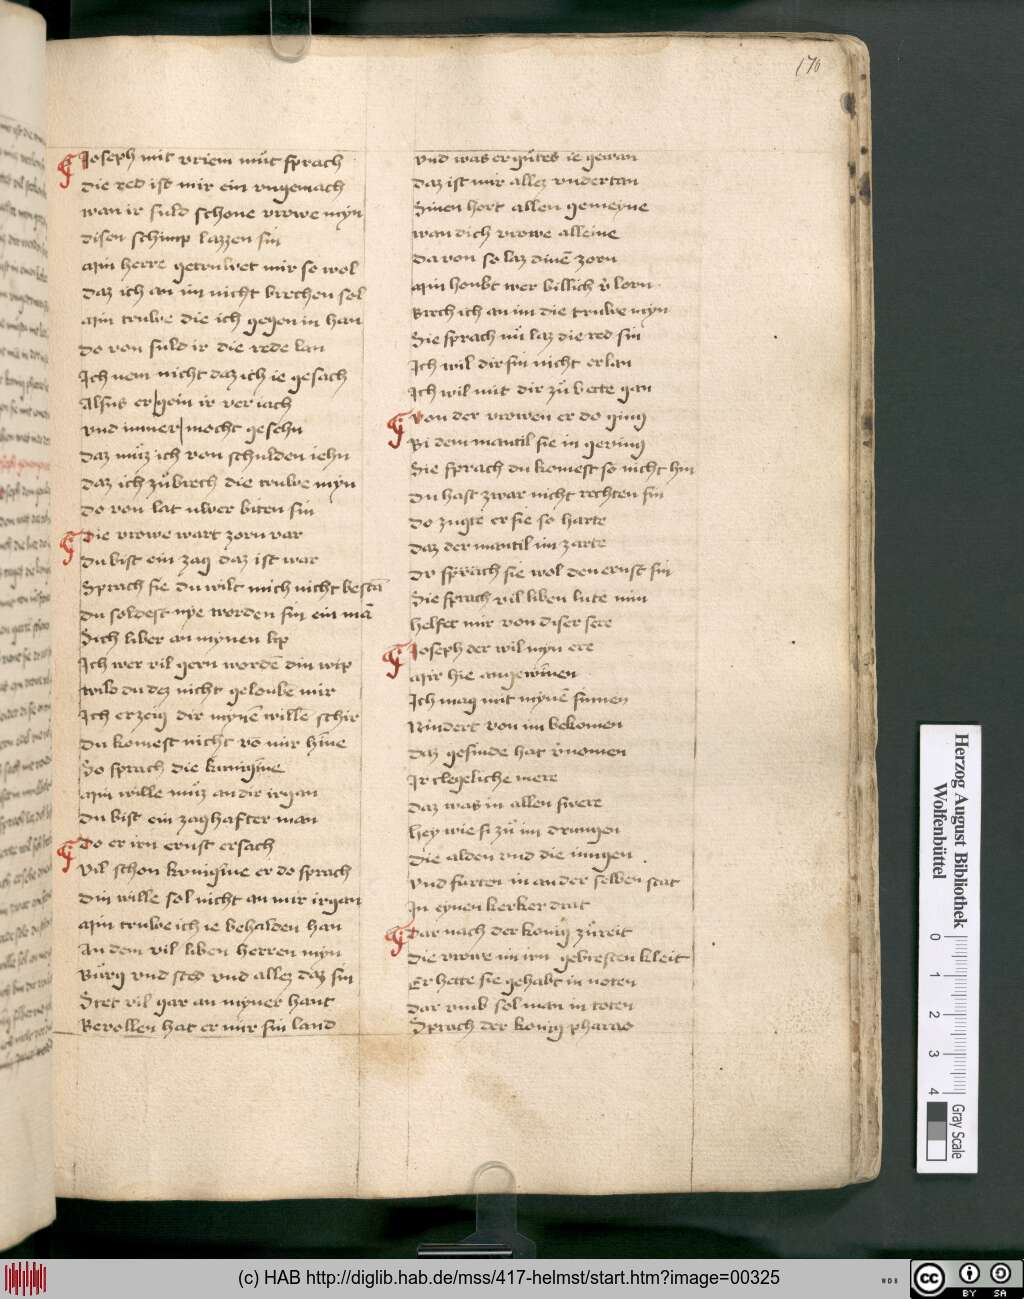 170
Joseph mit vriem mut sprach
die red ist mir ein vngemach
wan ir suld schone vrowe myn
disen schimp lazzen sin
Min herre getruwet mir so wol
daz ich an im nicht brechen sol
Min truwe die ich gegen in han
do von suld ir die rede lan
Ich nem nicht daz ich ie gesach
Alsus er gein ir veriach
vnd immer mocht gesehn
daz muz ich von schulden iehn
daz ich zubrech die truwe myn
do von lat uwer biten sin
Die vrowe wart zorn var
du bist ein zag daz ist war
Sprach sie du wilt mich nicht besta
du soldest nye worden sin ein ma
Sich liber an mynen lip
Ich wer vil gern worde din wip
wilo du dez nicht geloube mir
Ich erzeug dir myne wille schir
du komest nicht vo mir hine
So sprach die kunigine
Min wille muz an dir irgan
du bist ein zaghafter man
Do er irn ernst ersach
vil schon konigine er do sprach
Din wille sol nicht an mir irgan
Min truwe ich ie behalden han
An dem vil liben herren myn
Burg vnd sted vnd allez daz sin
Stet vil gar an myner hant
Bevollen hat er mir sin land
vnd was er gutes ie gewan
daz ist mir allez vndertan
Sinen hort allen gemeyne
wan dich vrowe alleine
da von so laz dine zorn
Min houbt wer billich v lorn
Brech ich an im die truwe myn
Sie sprach nu laz die red sin
Ich wil dir sin nicht erlan
Ich wil mit dir zu bette gan
Von der vrowen er do ging
Bi dem mantil sie in geving
Sie sprach du komest so nicht hin
du hast zwar nicht rechten sin
do zugte er sie so harte
daz der mantil im zarte
do sprach sie wol den ernst sin
Sie sprach vil liben lute min
helfet mir von diser sere
Joseph der wil myn ere
Mir hie angewinen
Ich mag mit myne sinnen
Nindert von im bekomen
daz gesinde hat vnomen
Ir clegeliche mere
daz was in allen swere
hey wie si zu im drungen
die alden vnd die iungen
vnd furten in an der selben stat
In eynen kerker drat
Dar nach der konig zureit
die vrowe im irn gebresten kleit
Er hette sie gehabt in noten
dar vmb sol man in toten
Sprach der konig pharao
Herzog August Bibliothek
Wolfenbüttel
0 1 2 3 4
Gray Scale
(c) HAB http://diglib.hab.de/mss/417-helmst/start.htm?image=00325
WDB
cc BY SA